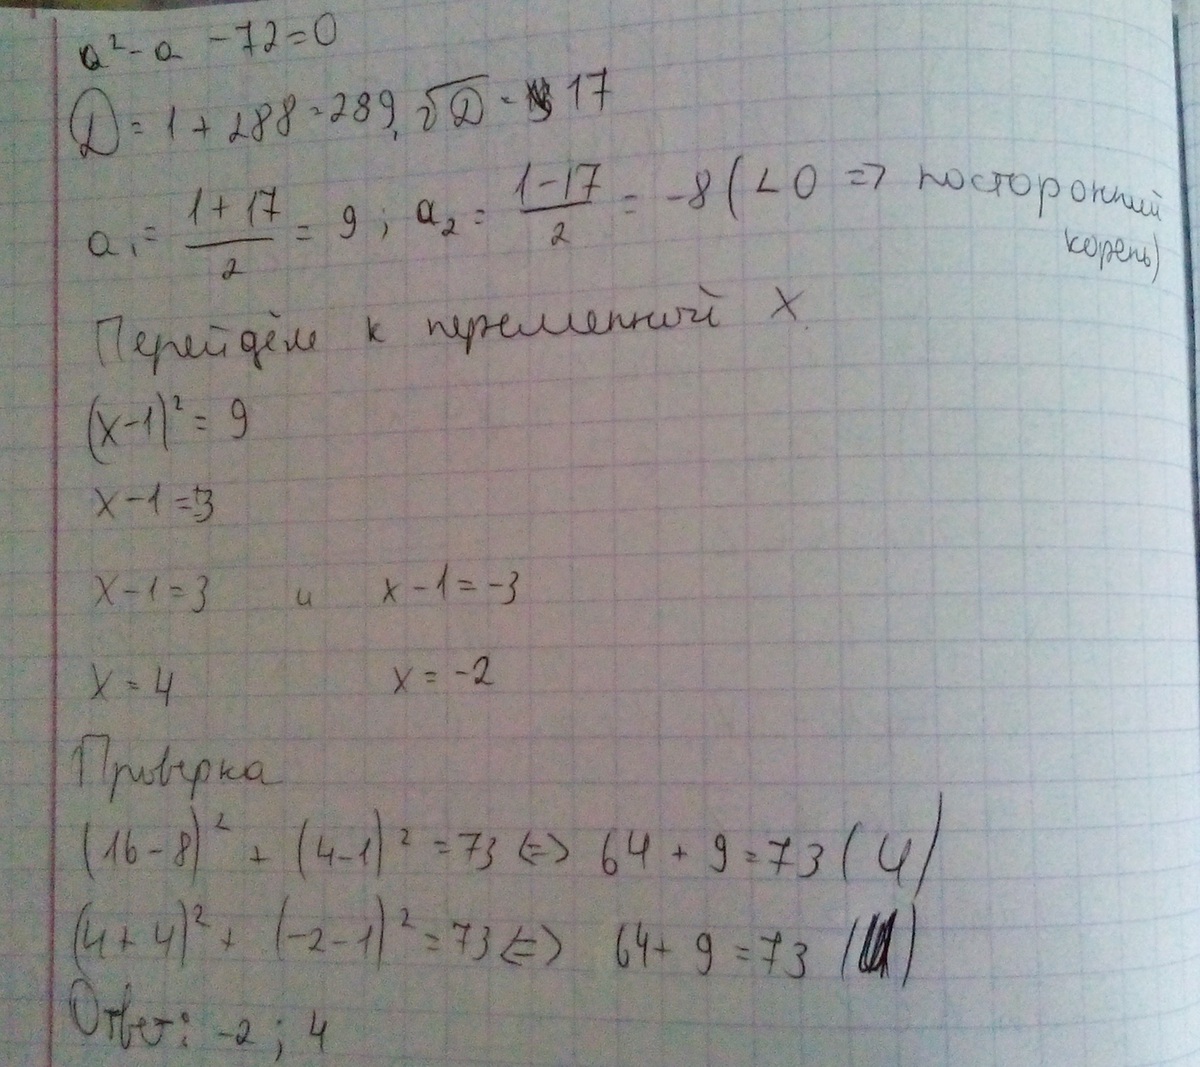 a² - a - 72 = 0
D = 1 + 288 = 289, √D = 17
a₁ = (1 + 17)/2 = 9; a₂ = (1 - 17)/2 = -8 (< 0 => посторонний
корень)
Перейдём к переменной x.
(x - 1)² = 9
x - 1 = ±3
x - 1 = 3 и x - 1 = -3
x = 4 x = -2
Проверка
(16 - 8)² + (4 - 1)² = 73 <=> 64 + 9 = 73 (И)
(4 + 4)² + (-2 - 1)² = 73 <=> 64 + 9 = 73 (И)
Ответ: -2; 4